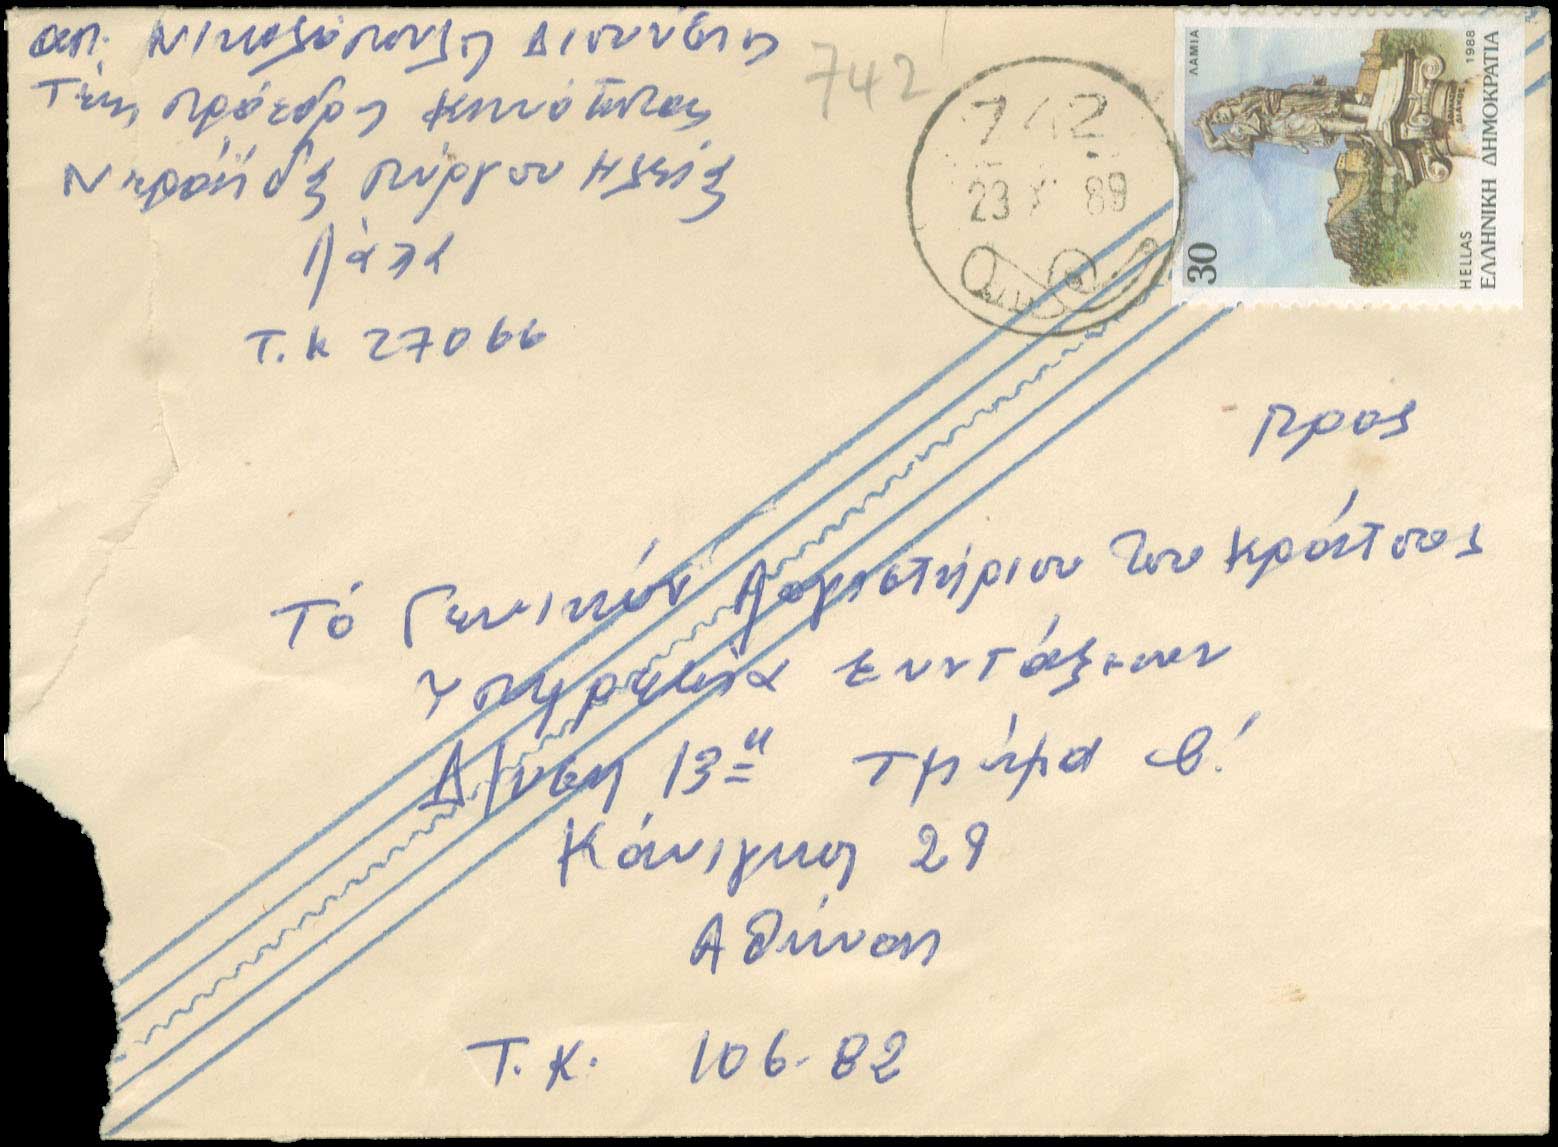 απ. Νικολόπουλη Διονύσης
Τέως πρόεδρος Κοινότητας
Νεράϊδα πύργου Ηλείας
Λάλα
Τ.Κ 27066
742
742
23 X 89
ΛΑΜΙΑ
1988
ΑΘΑΝΑΣΙΟΣ
ΔΙΑΚΟΣ
30
HELLAS
ΕΛΛΗΝΙΚΗ ΔΗΜΟΚΡΑΤΙΑ
προς
Τό Γενικόν Λογιστήριον του Κράτους
Υπηρεσία Συντάξεων
Δ/νση 13η Τμήμα β'.
Κάνιγκος 29
Αθήναι
Τ.Κ. 106-82